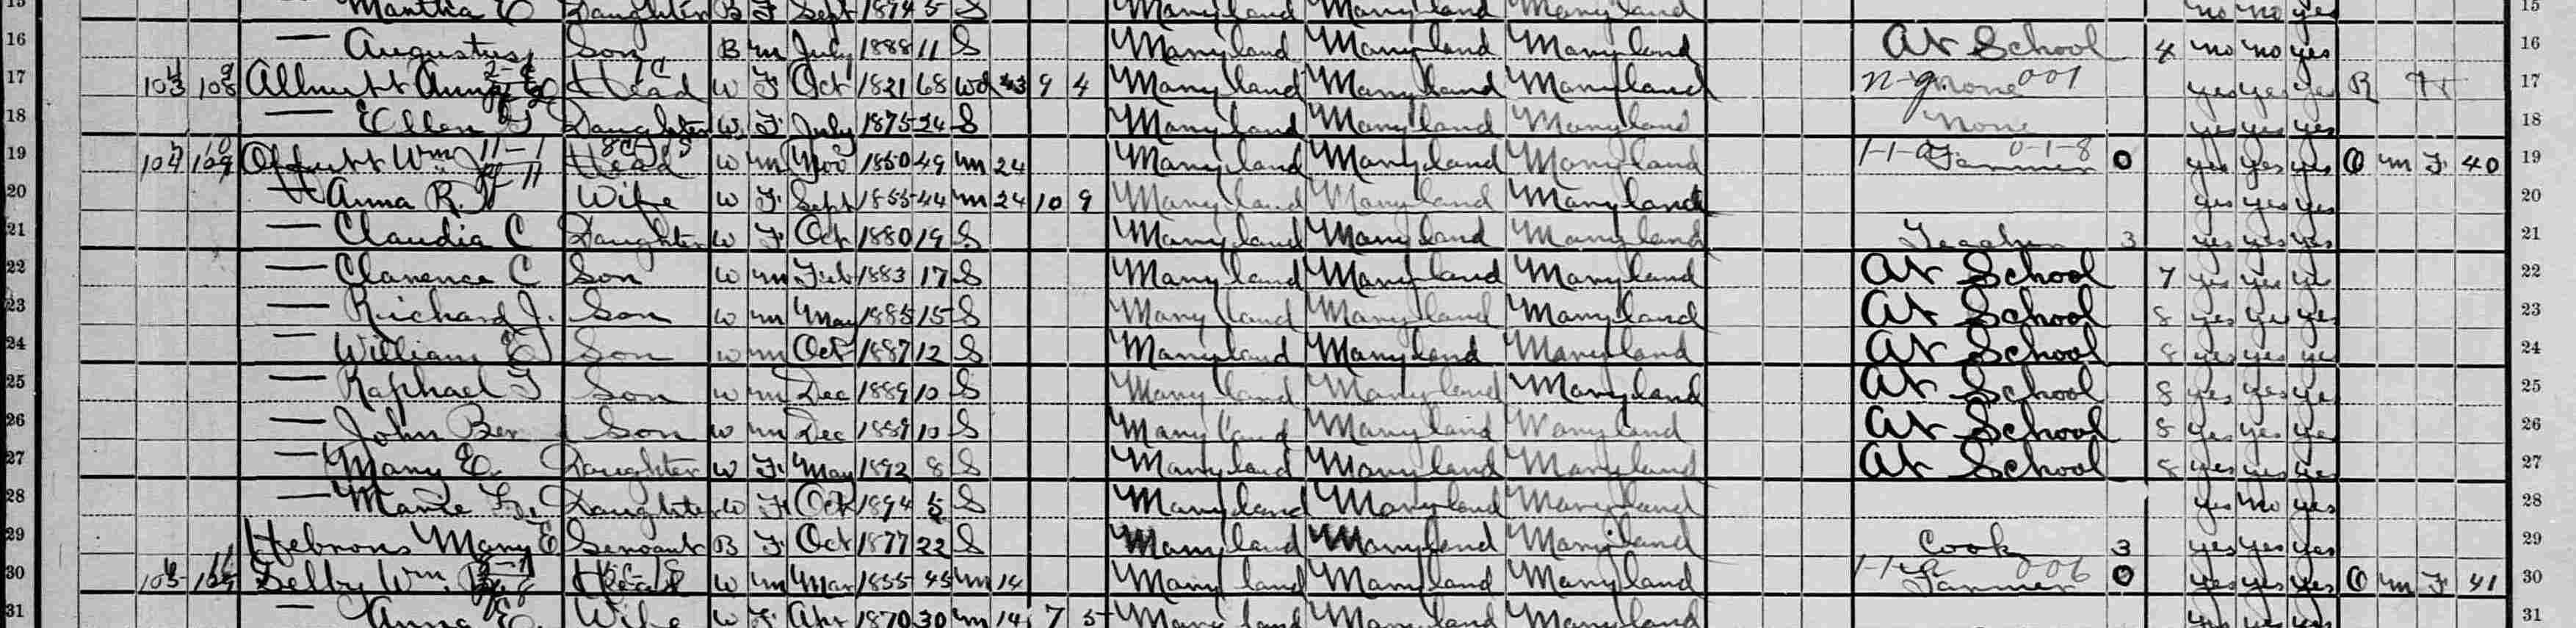 15 Martha E Daughter B F Sept 1894 5 S Maryland Maryland Maryland no no yes 15
16 — Augustus Son B m July 1888 11 S Maryland Maryland Maryland At School 4 no no yes 16
17 Allnutt Head W F Oct 1821 68 Wd 43 9 4 Maryland Maryland Maryland None 001 yes yes yes R H 17
18 — Ellen Daughter W F July 1875 24 S Maryland Maryland Maryland None yes yes yes 18
19 Offutt Wm 11-1 Head W m Nov 1850 49 m 24 Maryland Maryland Maryland Farmer 0-1-8 O yes yes yes O m F 40 19
20 Anna R. Wife W F Sept 1855 44 m 24 10 9 Maryland Maryland Maryland yes yes yes 20
21 — Claudia C Daughter W F Oct 1880 19 S Maryland Maryland Maryland Teacher 3 yes yes yes 21
22 — Clarence C Son W m Feb 1883 17 S Maryland Maryland Maryland At School 7 yes yes yes 22
23 — Richard J. Son W m May 1885 15 S Maryland Maryland Maryland At School 8 yes yes yes 23
24 — William E Son W m Oct 1887 12 S Maryland Maryland Maryland At School 8 yes yes yes 24
25 — Raphael T Son W m Dec 1889 10 S Maryland Maryland Maryland At School 8 yes yes yes 25
26 — John Ben Son W m Dec 1889 10 S Maryland Maryland Maryland At School 8 yes yes yes 26
27 — Mary E. Daughter W F May 1892 8 S Maryland Maryland Maryland At School 8 yes yes yes 27
28 — Marie Daughter W F Oct 1894 5 S Maryland Maryland Maryland yes no yes 28
29 Hebrons Mary E Servant B F Oct 1877 22 S Maryland Maryland Maryland Cook 3 yes yes yes 29
30 Selby Wm. Head W m Mar 1855 45 m 14 Maryland Maryland Maryland Farmer 006 O yes yes yes O m F 41 30
31 — Anna E. Wife W F Apr 1870 30 m 14 7 5 Maryland Maryland Maryland yes yes yes 31